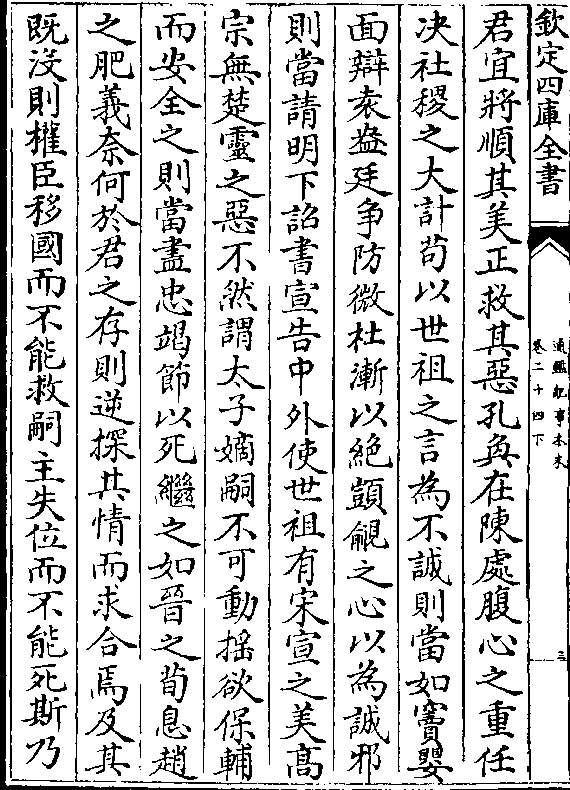 欽定四庫全書
通鑑紀事本末
卷二十四下
三
君宜將順其美正救其惡孔奐在陳處腹心之重任
决社稷之大計苟以世祖之言為不誠則當如竇嬰
面辯袁盎廷争防微杜漸以絶覬覦之心以為誠邪
則當請明下詔書宣告中外使世祖有宋宣之美高
宗無楚靈之惡不然謂太子嫡嗣不可動揺欲保輔
而安全之則當盡忠竭節以死繼之如晉之荀息趙
之肥義奈何於君之存則逆探其情而求合焉及其
既没則權臣移國而不能救嗣主失位而不能死斯乃